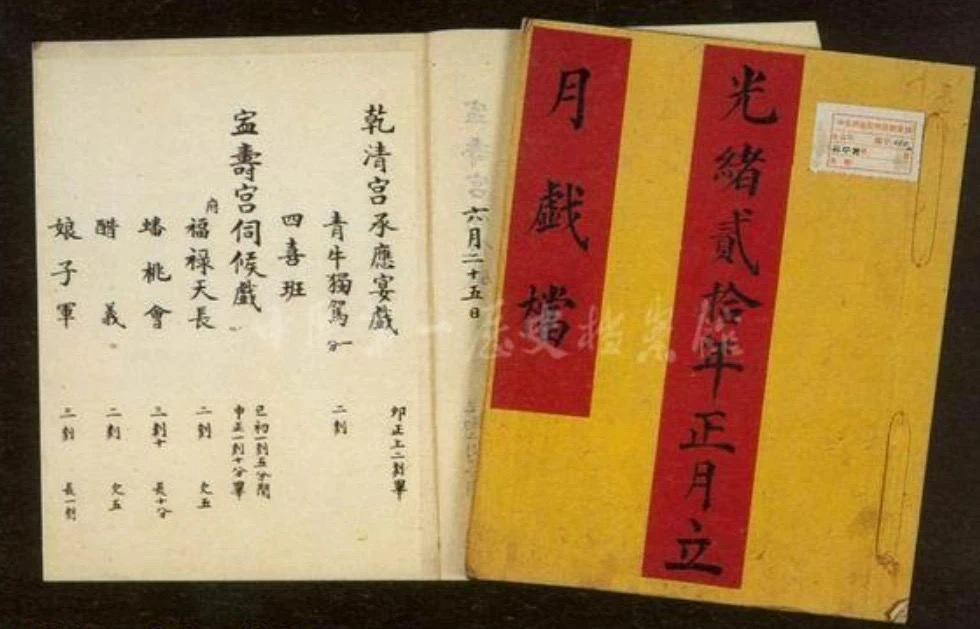 光緒貳拾年正月立
月戲檔
六月二十五日
乾清宫承應宴戲 卯正上二刻畢
青牛獨駕 一分 二刻
四喜班
寍壽宫伺候戲 巳初一刻五分開
申正一刻十分畢
府
福禄天長 二刻 欠五
蟠桃會 三刻十 長十分
醋義 二刻 欠五
娘子軍 三刻 長一刻